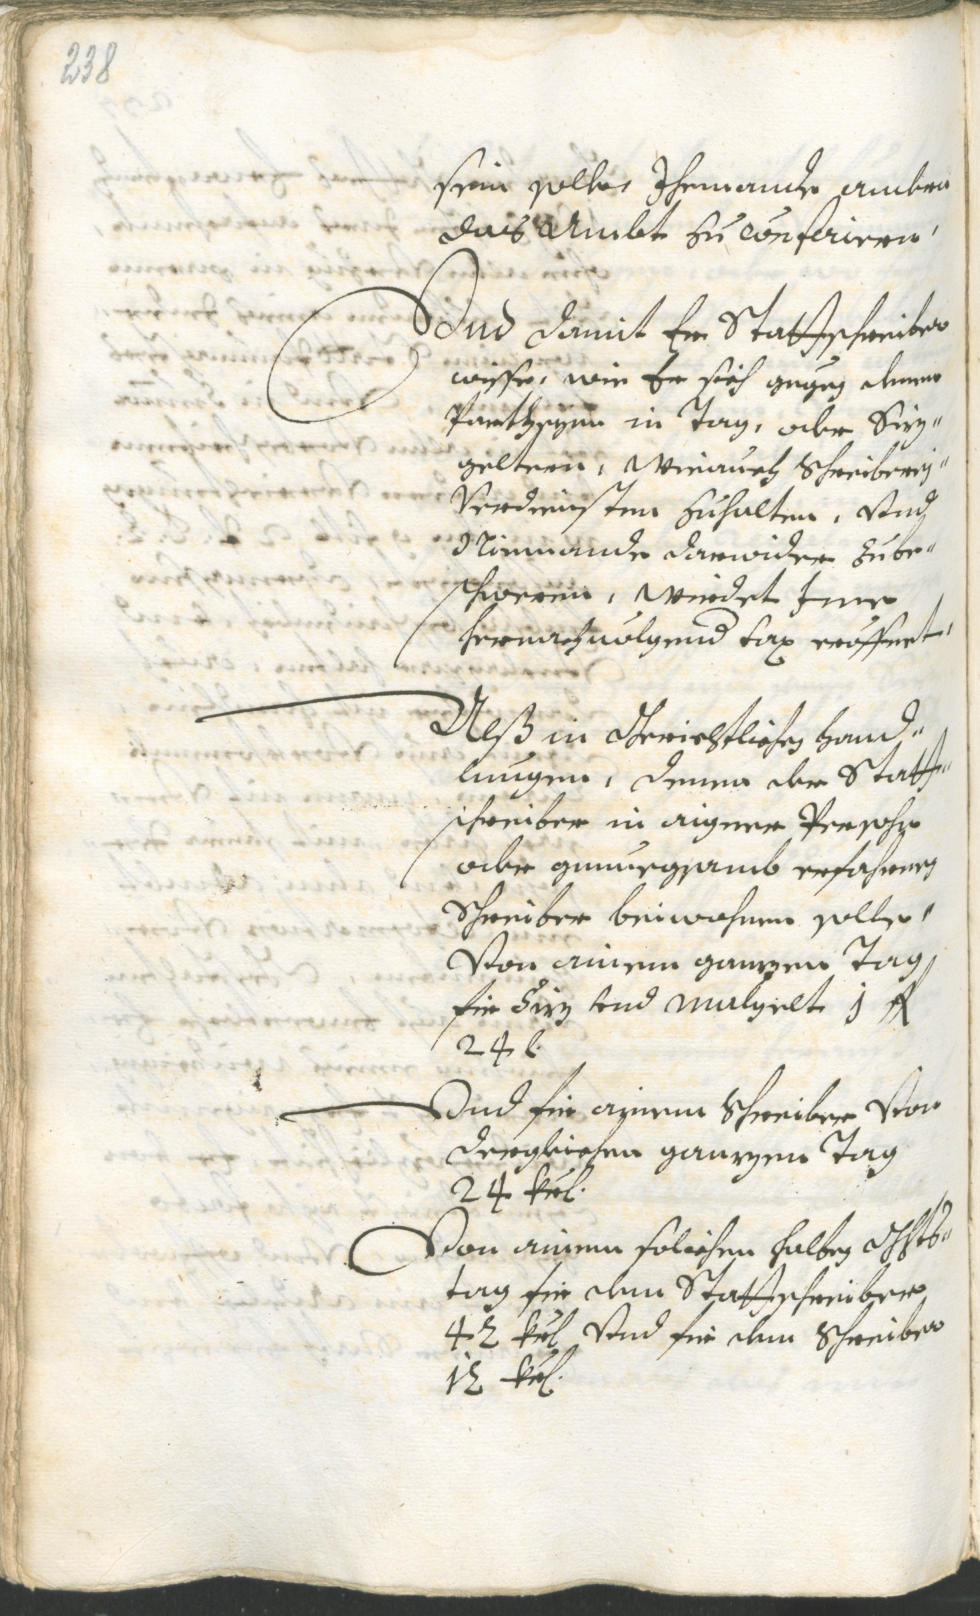 238
sein solle, Jhemande andern
das Ambt zu conferiern,
Vnd damit Er Stattschreiber
wisse, wie Er sich gegen denen
Partheyen in Tag, oder Siz¬
geltern, wie auch Schreiberey¬
Verdiensten zuhalten, Vnd
Niemande darwider zube¬
schweren, würdet Jme
hernachuolgend tax eröffnet,
Alß in Gerichtlichen hand¬
lungen, denen der Statt¬
schreiber in aigner Persohn
oder genuegsamb erfahrnen
Schreiber beiwohnen solle,
Von ainem ganzen Tag
für Siz vnd malgelt 1 fl
24 k.
Vnd für ainem Schreiber Von
dergleichen ganzen Tag
24 kr.
Von ainem solichen halben
tag für den Stattschreiber
42 kr. Vnd für den Schreiber
12 kr.